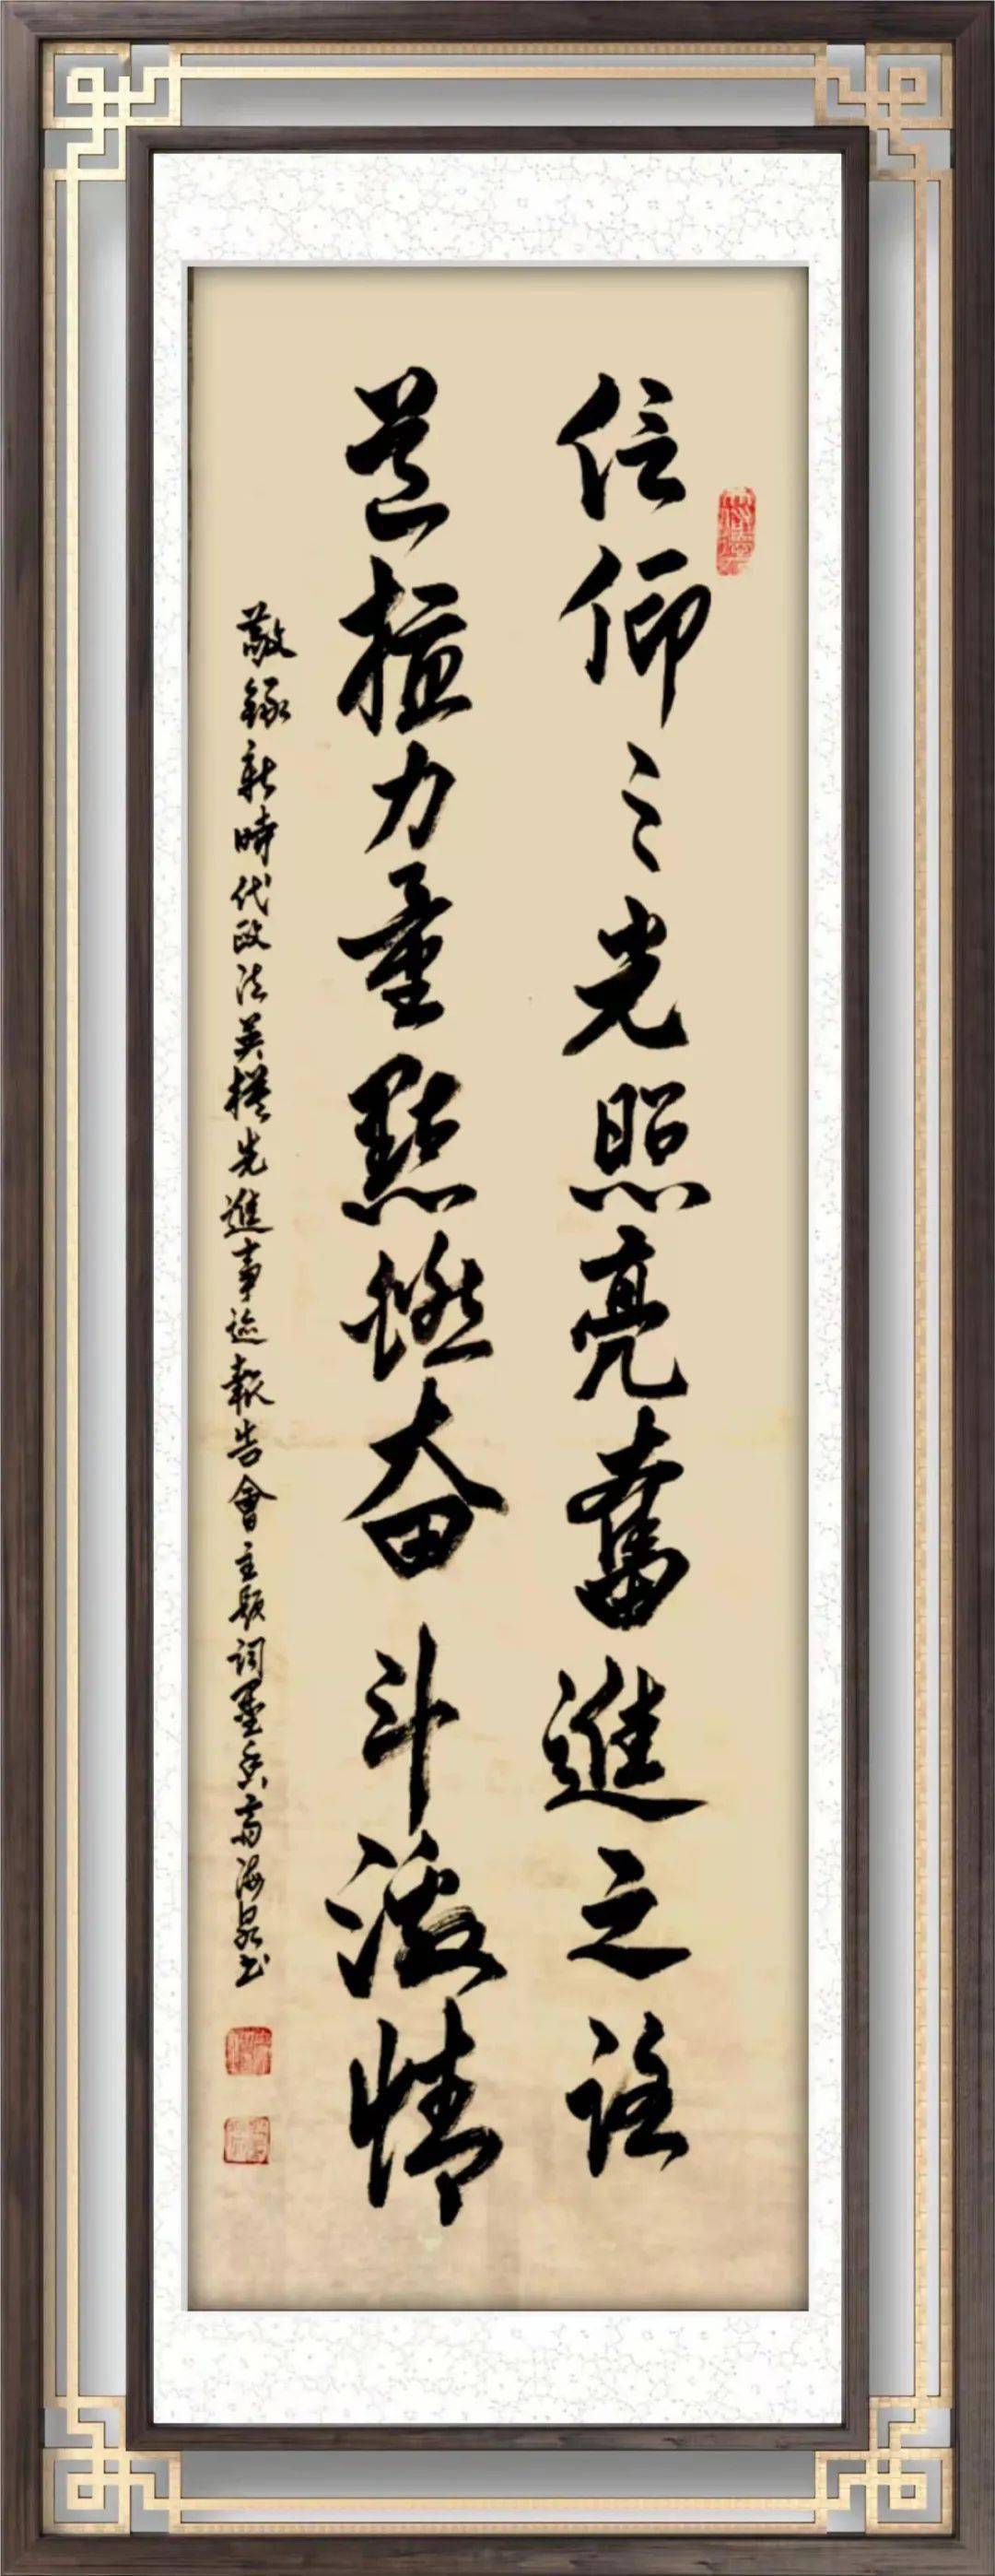 信仰之光照亮奮進之路
力量點燃奋斗激情
敬錄新時代政法英模先進事迹報告會主題詞墨香齋海泉书